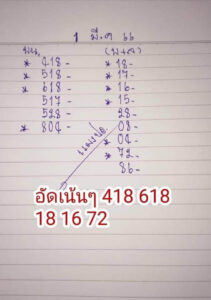 1 มี.ค 66
บน. (บ+ล)
* 418- * 18-
* 518- * 17-
* 618- * 16-
517- * 15-
528- 28-
* 804- 08-
* 04-
* 72-
86-
อัดเน้นๆ 418 618
18 16 72